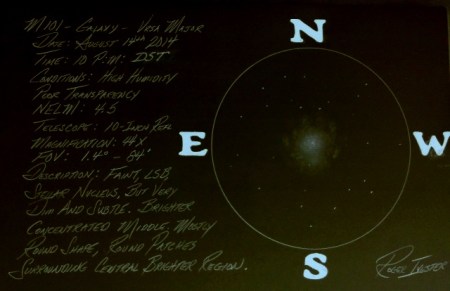 M101 - Galaxy - Ursa Major
Date: August 14th 2014
Time: 10 P:M: DST
Conditions: High Humidity
Poor Transparency
NELM: 4.5
Telescope: 10-Inch Refl
Magnification: 44X
FOV: 1.4° - 84'
Description: Faint, LSB,
Stellar Nucleus, But Very
Dim And Subtle. Brighter
Concentrated Middle, Mostly
Round Shape, Round Patches
Surrounding Central Brighter Region.
N
E
W
S
Roger